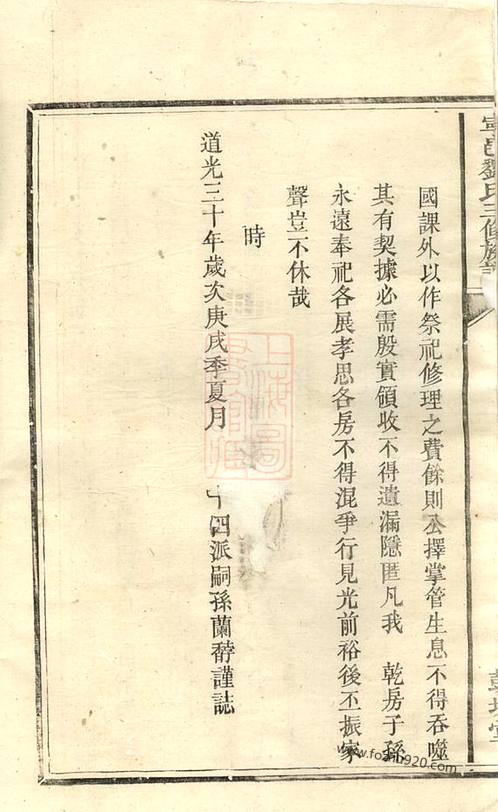 國課外以作祭祀修理之費餘則公擇掌管生息不得吞噬
其有契據必需殷實領收不得遺漏隱匿凡我 乾房子孫
永遠奉祀各展孝思各房不得混爭行見光前裕後丕振家
聲豈不休哉
時
道光三十年歲次庚戌季夏月 十四派嗣孫蘭馞謹誌
劉氏三修族譜
上海圖書館藏